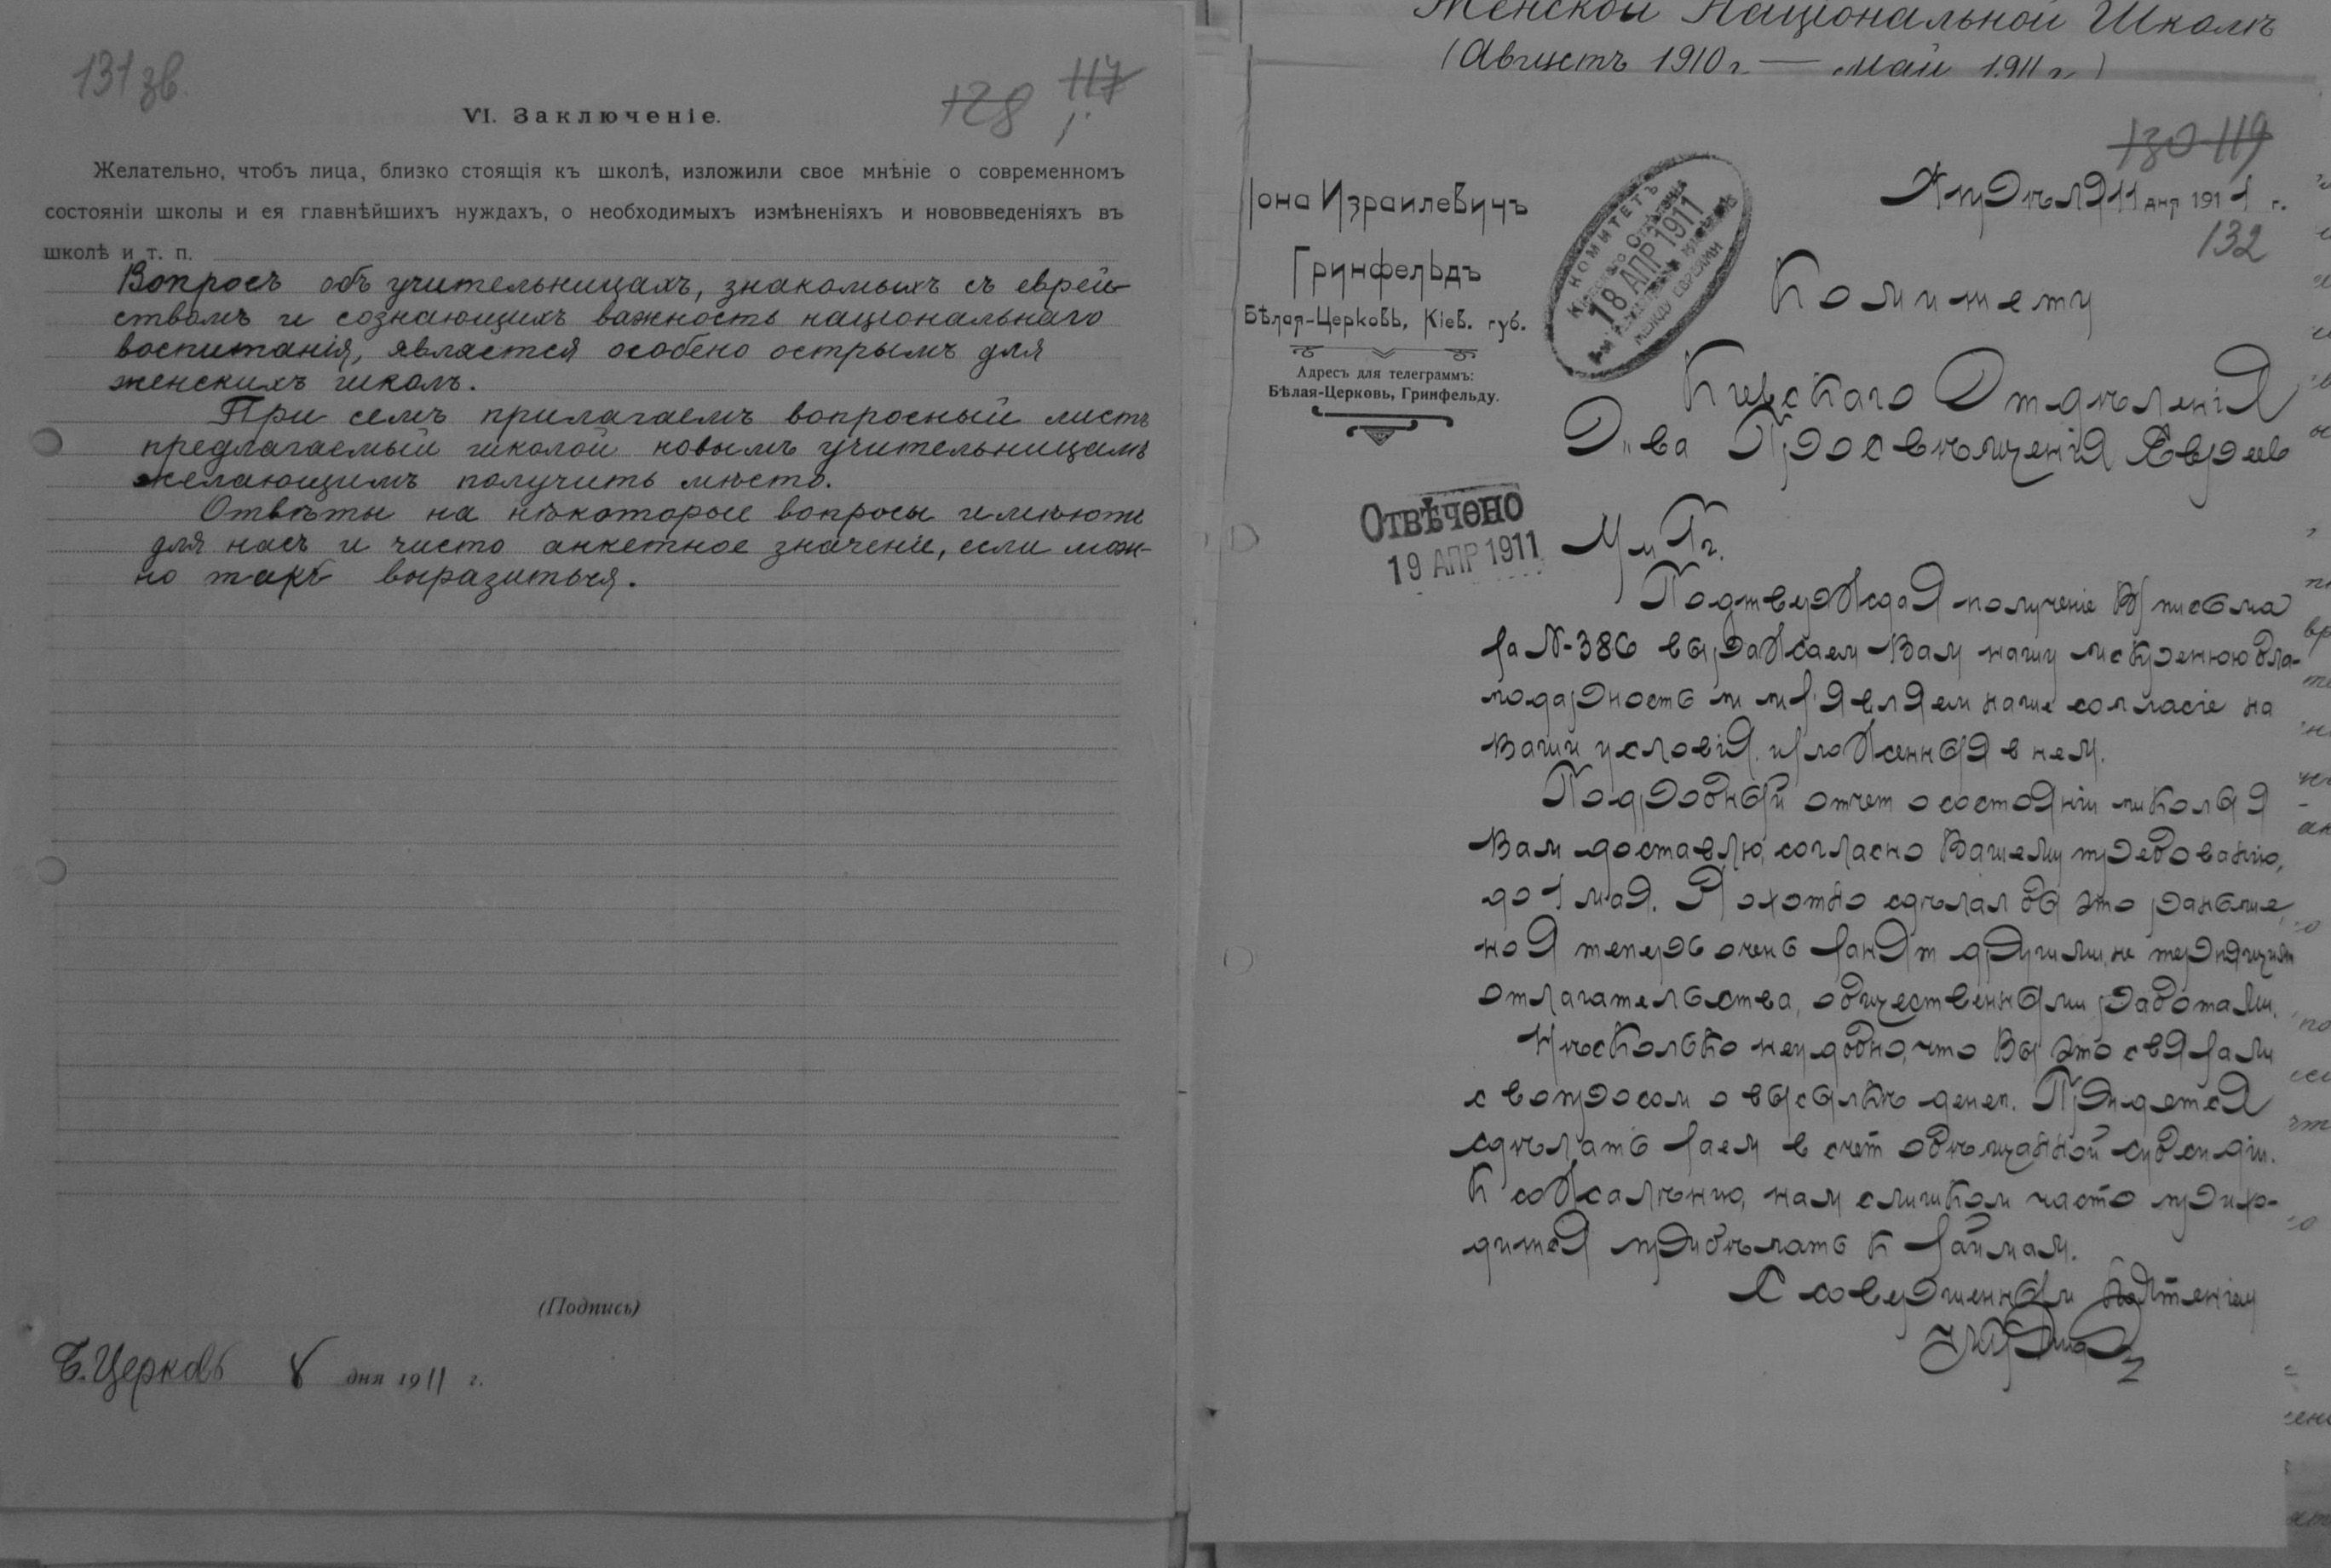 131 зв.
128 117
VI. Заключеніе.
Желательно, чтобъ лица, близко стоящія къ школѣ, изложили свое мнѣніе о современномъ
состояніи школы и ея главнѣйшихъ нуждахъ, о необходимыхъ измѣненіяхъ и нововведеніяхъ въ
школѣ и т. п.
Вопросъ объ учительницахъ, знакомыхъ съ еврей-
ствомъ и сознающихъ важность національнаго
воспитанія, является особено острымъ для
женскихъ школъ.
При семъ прилагаемъ вопросный листъ
предлагаемый школой новымъ учительницамъ
желающимъ получить мѣсто.
Отвѣты на нѣкоторые вопросы имѣютъ
для насъ и чисто анкетное значеніе, если мож-
но такъ выразиться.
(Подпись)
Б. Церковь 8 дня 1911 г.
Женской Національной Школѣ
(Августъ 1910 г. — май 1911 г.)
130 119
Іона Израилевичъ
Гринфельдъ
Бѣлая-Церковь, Кіев. губ.
Адресъ для телеграммъ:
Бѣлая-Церковь, Гринфельду.
КОМИТЕТЪ
18 АПР 1911
МЕЖДУ ЕВРЕЯМИ
Апрѣля 11 дня 1911 г.
132
Комитету
Киевскаго Отдѣленія
О-ва Просвѣщенія Евреев
ОТВѢЧЕНО
19 АПР 1911
М. Гг.
Подтверждая полученіе В/ письма
за №-386 выражаем Вам нашу искренюю бла-
годарность и изъявляем наше согласіе на
Ваши условія, изложенныя в нем.
Подробный отчет о состояніи школы я
Вам доставлю, согласно Вашему требованію,
до 1 мая. Я охотно сдѣлал бы это раньше,
но я теперь очень занят другими, не терпящими
отлагательства, общественными работами.
Нѣсколько неудобно, что Вы это связали
с вопросом о высылкѣ денег. Прийдется
сдѣлать заем в счет обѣщанной субсидіи.
К сожалѣнию, нам слишком часто прихо-
дится прибѣгать к займам.
С совершенным почтеніем